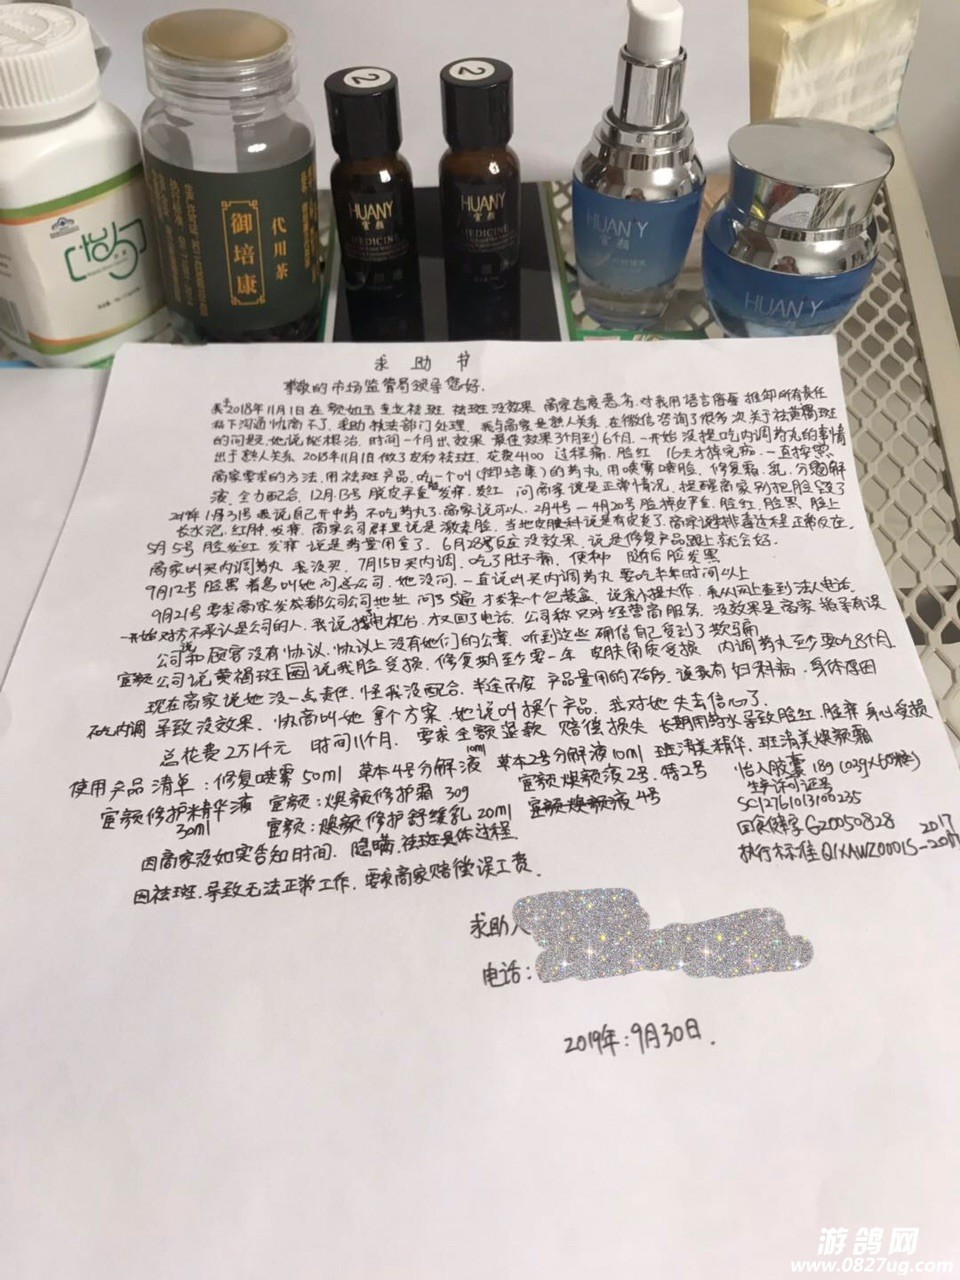 御培康
代川茶
2
2
HUANY
MEDICINE
HUANY
MEDICINE
HUANY
HUANY
求助书
尊敬的市场监管局领导您好.
2018年11月1日在 祛斑 祛斑没效果 商家态度恶劣.对我用语言侮辱 推卸所有责任
私下沟通协商不了.求助执法部门处理.我与商家是熟人关系.在微信咨询了很多次关于祛黄褐斑
的问题.她说能根治.时间一个月出效果 最佳效果3个月到6个月.一开始没提吃内调药丸的事情
出于熟人关系.2018年11月1日做了皮秒祛斑.花费4100 过程痛.脸红 16天才掉完痂.一直按照
商家要求的方法.用祛斑产品.吃一个叫(御培康)的药丸.用喷雾喷脸.修复霜.乳.分解
液.全力配合.12月13号 脱皮严重 发痒.发红 问商家说是正常情况.提醒商家别把脸毁了
2019年1月31号 说自己开中药 不吃药丸了.商家说可以.2月4号—4月20号 脸掉皮严重.脸红.脸黑.脸上
长水泡.红肿.发痒.商家公司群里说是激素脸.当地皮肤科说是有皮炎了.商家说排毒过程 正常反应.
5月5号 脸发红 发痒 说是药量用重了.6月28号反应没效果.说是修复产品跟上就会好.
商家叫买内调药丸 我没买.7月15日买内调.吃了肚子痛.便秘 随后脸发黑
9月12号 脸黑 着急叫她问公司.她没问.一直说叫买内调药丸 要吃半年时间以上
9月21号 要求商家发成都公司公司地址 问了5遍 才发来一个包装盒.说我小题大作.我从网上查到法人电话.
一开始对方不承认是公司的人.我说找电视台.才又回了电话.公司称只对经营商服务.没效果是商家 有误
公司说和顾客没有协议.协议上没有她们的公章.听到这些 确信自己受到了欺骗
公司说黄褐斑 说我脸受损.修复期至少要一年 皮肤角质受损 内调药丸至少要吃8个月
现在商家说她没一点责任.怪我没配合.半途而废 产品量用的不多.该我有妇科病.身体原因
不吃内调 导致没效果.协商叫她拿个方案.她说叫换个产品.我对她失去信心了.
总花费2万1千元 时间11个月.要求全额退款 赔偿损失 长期用药水导致脸红.脸痒 身心受损
使用产品清单:修复喷雾50ml 草本4号分解液10ml 草本2号分解液10ml 斑清美精华.斑清美焕颜霜
修护精华液 焕颜修护霜30g 焕颜液2号.特2号 怡人胶囊18g
30ml 焕颜修护舒缓乳20ml 焕颜液4号 生产许可证号
SC12761013100235
因商家没如实告知时间.隐瞒.祛斑具体过程. 国食健字G20050828
因祛斑.导致无法正常工作.要求商家赔偿误工费. 执行标准Q1XAWZ0001S-2017
求助人
电话:
2019年:9月30日.
游鸽网
www.0827ug.com